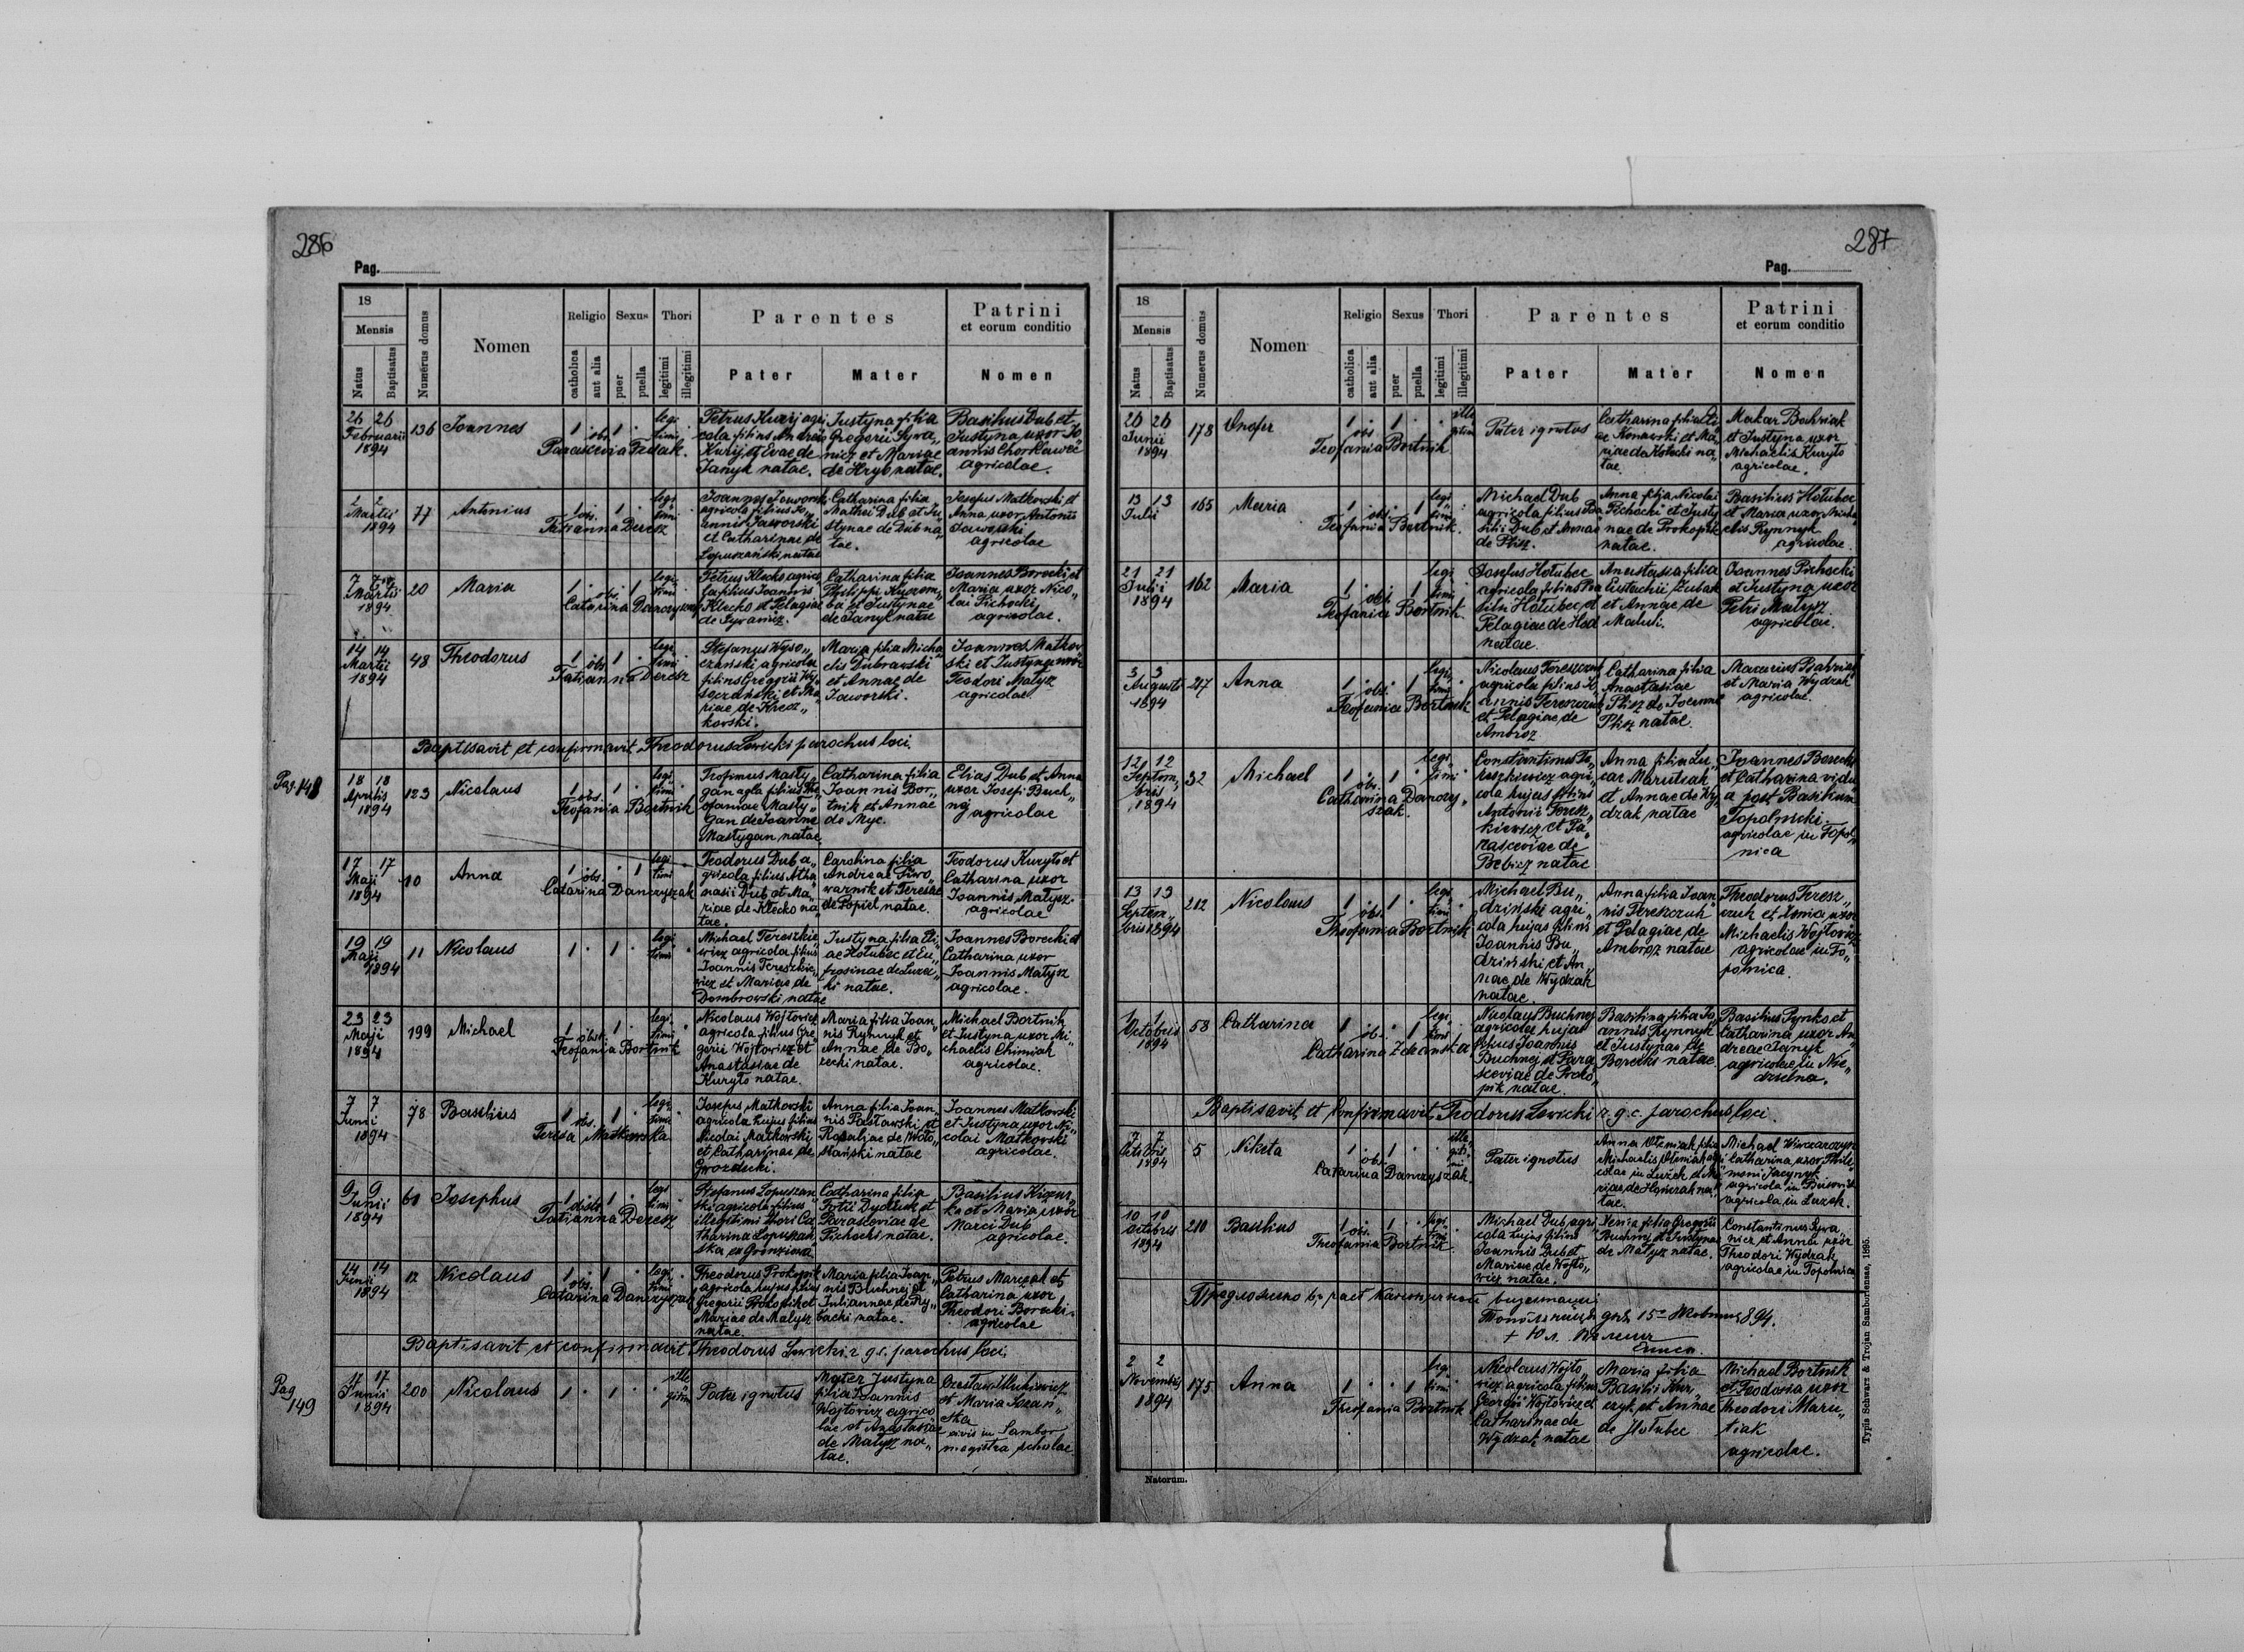 286
Pag.
18
Mensis
Natus
Baptisatus
Numerus domus
Nomen
Religio
catholica
aut alia
Sexus
puer
puella
Thori
legitimi
illegitimi
Parentes
Pater
Mater
Patrini
et eorum conditio
Nomen
26 26
Februarii
1894
136
Joannes
1 . 1 .
legi
timi
obs.
Parascevia Fedak.
Petrus Kuryj agri
cola filius Andreae
Kuryj et Evae de
Janyk natae.
Justyna filia
Gregorii Syra„
nicz et Mariae
de Hryb natae.
Basilius Dub et
Justyna uxor Jo
annis Chorkawec
agricolae.
2 2
Martii
1894
77
Antonius
1 . 1 .
legi
timi
obs.
Tatianna Deresz
Joannes Jaworski
agricola filius Jo„
annis Jaworski
et Catharinae de
Łopuszański natae
Catharina filia
Mathei Dub et Ju
stynae de Dub na
tae.
Josefus Matkowski et
Anna uxor Antonii
Jaworski
agricolae
7 7
Martii
1894
20
Maria
1 . . 1
legi
timi
obs.
Catarina Danczyszak
Petrus Klecko agrico
la filius Joannis
Klecko et Pelagiae
de Syranicz.
Catharina filia
Philippi
et Justynae
de Janyk natae
Joannes Borecki et
Maria uxor Nico„
lai Pichocki
agricolae.
14 14
Martii
1894
48
Theodorus
1 . 1 .
legi
timi
obs.
Tatianna Deresz
Stefanus Wyso„
czański agricola
filius Gregorii Wy
soczański et Ma
riae de Krecz„
kowski.
Maria filia Micha
elis Dubrawski
et Annae de
Jaworski.
Joannes Matkow
ski et Justyna uxor
Teodori Matysz
agricolae.
Baptisavit et confirmavit Theodorus Lewicki parochus loci.
Pag. 148
18 18
Aprilis
1894
123
Nicolaus
1 . 1 .
legi
timi
obs.
Teofania Bortnik
Trofimus Masty„
gan agla filius The
ofaniae Masty„
gan de Joanne
Mastygan natae
Catharina filia
Joannis Bor„
tnik et Annae
de Myc.
Elias Dub et Anna
uxor Josefi Buch„
nij agricolae
17 17
Maji
1894
10
Anna
1 . . 1
legi
timi
obs.
Catarina Danczyszak
Teodorus Dub a„
gricola filius Atha
nasii Dub et Ma„
riae de Klecko na
tae.
Carolina filia
Andreae
et Teresae
de Popiel natae.
Teodorus Kuryło et
Catharina uxor
Joannis Matysz
agricolae
19 19
Maji
1894
11
Nicolaus
1 . 1 .
legi
timi
Michael Tereszkie„
wicz agricola filius
Joannis Tereszkie„
wicz et Mariae de
Dombrowski natae
Justyna filia Eli„
ae Hołubec et Eu„
frosinae de
ki natae.
Joannes Borecki et
Catharina uxor
Joannis Matysz
agricolae.
23 23
Maji
1894
199
Michael
1 . 1 .
legi
timi
obst.
Teofania Bortnik
Nicolaus Wojtowicz
agricola filius Gre„
gorii Wojtowicz et
Anastasiae de
Kuryło natae.
Maria filia Joan„
nis Rynnyk et
Annae de Bo„
recki natae.
Michael Bortnik
et Justyna uxor Mi„
chaelis Chimiak
agricolae.
7 7
Junii
1894
78
Basilius
1 . 1 .
legi
timi
obs.
Teresa Matkowska
Josefus Matkowski
agricola hujus filius
Nicolai Matkowski
et Catharinae de
Grozdecki.
Anna filia Joan„
nis Pasławski et
Rosaliae de Woło„
szański natae
Joannes Matkowski
et Justyna uxor Ni„
colai Matkowski
agricolae.
9 9
Junii
1894
60
Josephus
1 . 1 .
legi
timi
obst.
Tatianna Deresz
Stefanus Łopuszań
ski agricola filius
illegitimi thori Ca
tharina Łopuszań
ska
Catharina filia
Fotii Dydiuk et
Parasceviae de
Pichocki natae.
Basilius
et Maria uxor
Marci Dub
agricolae.
14 14
Junii
1894
12
Nicolaus
1 . 1 .
legi
timi
obs.
Catarina Danczyszak
Theodorus Prokopik
agricola hujus filius
Gregorii Prokopik et
Mariae de Matysz
natae.
Maria filia Joan„
nis Buchnij et
Juliannae de Ry„
backi natae.
Petrus Marczak et
Catharina uxor
Theodori Borecki
agricolae
Baptisavit et confirmavit Theodorus Lewicki r. g. c. parochus loci.
Pag
149
17 17
Junii
1894
200
Nicolaus
1 . 1 .
ille
gitimi
Pater ignotus
Mater Justyna
filia Joannis
Wojtowicz agrico
lae et Anastasiae
de Matysz na„
tae.
et Maria
civis in Sambor
magistra scholae
287
Pag.
18
Mensis
Natus
Baptisatus
Numerus domus
Nomen
Religio
catholica
aut alia
Sexus
puer
puella
Thori
legitimi
illegitimi
Parentes
Pater
Mater
Patrini
et eorum conditio
Nomen
26 26
Junii
1894
178
Onofer
1 . 1 .
ille
gitimi
obs.
Teofania Bortnik
Pater ignotus
Catharina filia Eli
ae Konawski et Ma„
riae de Klecki na
tae.
Makar Bahniak
et Justyna uxor
Michaelis Kuryło
agricolae.
13 13
Julii
165
Maria
1 . . 1
legi
timi
obs.
Teofania Bortnik.
Michael Dub
agricola filius Ba
silii Dub et Annae
de Plisz.
Anna filia Nicolai
Pichocki et Justy
nae de Prokopik
natae.
Basilius Hołubec
et Maria uxor Micha
elis Rynnyk
agricolae.
21 21
Julii
1894
162
Maria
1 . . 1
legi
timi
obs.
Teofania Bortnik.
Josefus Hołubec
agricola filius Ba
silii Hołubec et
Pelagiae de Hod
natae.
Anastasia filia
Eustachii Żubak
et Annae de
Maluti.
Joannes Pichocki
et Justyna uxor
Petri Matysz
agricolae.
3 3
Augusti
1894
217
Anna
1 . . 1
legi
timi
obs.
Teofania Bortnik
Nicolaus Tereszczuk
agricola filius Jo
annis Tereszczuk
et Pelagiae de
Ambroz
Catharina filia
Anastasiae
Plisz de Joanne
Plisz natae.
Macarius Bahniak
et Maria Wydzak
agricolae.
12 12
Septem„
bris
1894
32
Michael
1 . 1 .
legi
timi
obs.
Catharina Danczy„
szak.
Constantinus Te„
reszkiewicz agri„
cola hujus filius
Antonii Teresz„
kiewicz et Pa„
rasceviae de
Bebicz natae
Anna filia Lu„
cae Marutiak
et Annae de Wy„
dzak natae
Joannes Borecki
et Catharina vidu
a post Basilium
Topolnicki
agricolae in Topol„
nica
13 13
Septem„
bris 1894
212
Nicolaus
1 . 1 .
legi
timi
obs.
Theofania Bortnik
Michael Bu„
dziński agri„
cola hujus filius
Joannis Bu„
dziński et An„
nae de Wydzak
natae.
Anna filia Joan„
nis Tereszczuk
et Pelagiae de
Ambroz natae
Theodorus Teresz„
czuk et Xenia uxor
Michaelis Wojtowicz
agricolae in To„
polnica.
1 1
Octobris
1894
58
Catharina
1 . . 1
legi
timi
ob.
Catharina
Nicolaus Buchnej
agricola hujus
filius Joannis
Buchnej et Para
sceviae de Proko„
pik natae.
Basilina filia Jo„
annis Rynnyk
et Justynae de
Borecki natae.
Basilius Pynko et
Catharina uxor An„
dreae Janyk
agricolae in Nie„
drzelna.
Baptisavit et Confirmavit Teodorus Lewicki r. g. c. parochus loci.
7 7
Octobris
1894
5
Nikita
1 . 1 .
ille
giti
mi
ob.
Catarina Danczyszak.
Pater ignotus
Anna Oleniak filia
Michaelis Oleniak agri
colae in Łużek et Ma
riae de na
tae.
Michael
Catharina uxor Phile
moni Jacynyk
agricola in
agricola in Łużek.
10 10
Octobris
1894
210
Basilius
1 . 1 .
legi
timi
ob.
Theofania Bortnik
Michael Dub agri
cola hujus filius
Joannis Dub et
Mariae de Wojto„
wicz natae.
Xenia filia Gregorii
Buchnij et Justynae
de Matysz natae.
Constantinus Syra„
nicz et Anna uxor
Theodori Wydzak
agricolae in Topolnica
Предложено въ часѣ каноничной визитаціи
дня 15 1894.
+ Юл.
2 2
Novembris
1894
175.
Anna
1 . . 1
legi
timi
Theofania Bortnik
Nicolaus Wojto
wicz agricola filius
Georgii Wojtowicz et
Catharinae de
Wydzak natae
Maria filia
Basilii
et Annae
de Hołubec
Michael Bortnik
et Teodosia uxor
Theodori Maru„
tiak
agricolae.
Natorum.
Typis Schwarz & Trojan Samboriensae, 1895.